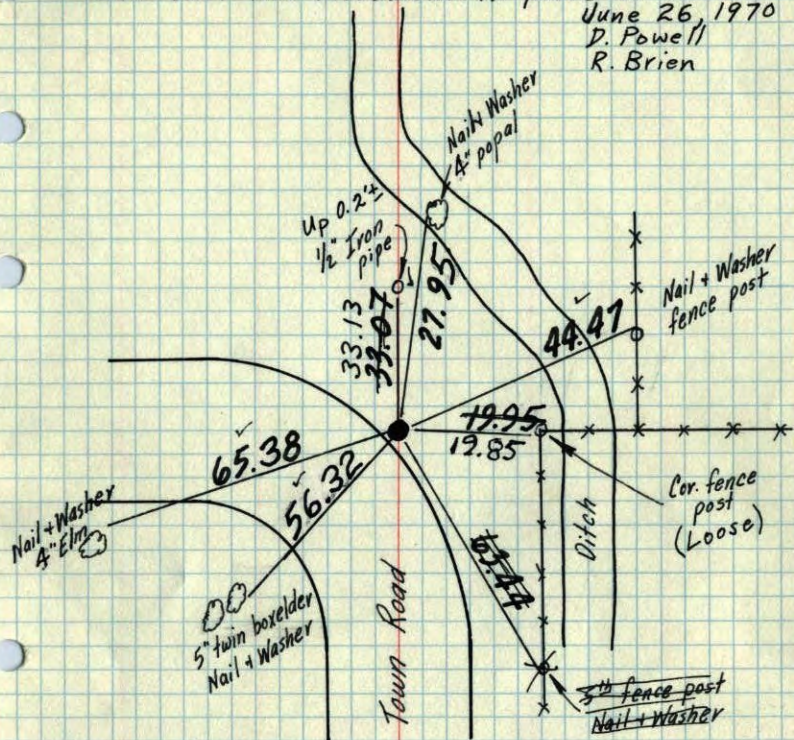 June 26, 1970
D. Powell
R. Brien
Nail & Washer
4" popal
Up 0.2'±
1/2" Iron
pipe
33.13
33.07
27.95
44.47
Nail + Washer
fence post
19.95
19.85
Cor. fence
post
(Loose)
65.38
56.32
Nail + Washer
4" Elm
5" twin boxelder
Nail + Washer
63.44
Ditch
Town Road
5th fence post
Nail + Washer